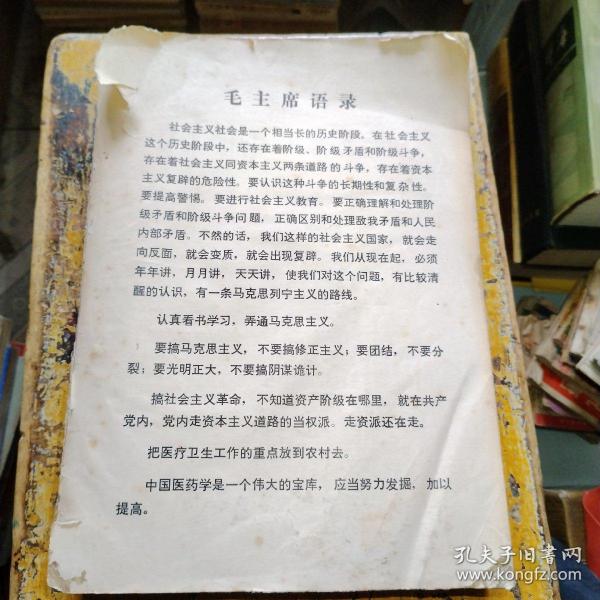 毛主席语录
社会主义社会是一个相当长的历史阶段。在社会主义
这个历史阶段中，还存在着阶级、阶级矛盾和阶级斗争，
存在着社会主义同资本主义两条道路的斗争，存在着资本
主义复辟的危险性。要认识这种斗争的长期性和复杂性。
要提高警惕。要进行社会主义教育。要正确理解和处理阶
级矛盾和阶级斗争问题，正确区别和处理敌我矛盾和人民
内部矛盾。不然的话，我们这样的社会主义国家，就会走
向反面，就会变质，就会出现复辟。我们从现在起，必须
年年讲，月月讲，天天讲，使我们对这个问题，有比较清
醒的认识，有一条马克思列宁主义的路线。
认真看书学习，弄通马克思主义。
要搞马克思主义，不要搞修正主义；要团结，不要分
裂；要光明正大，不要搞阴谋诡计。
搞社会主义革命，不知道资产阶级在哪里，就在共产
党内，党内走资本主义道路的当权派。走资派还在走。
把医疗卫生工作的重点放到农村去。
中国医药学是一个伟大的宝库，应当努力发掘，加以
提高。
孔夫子旧书网
www.kongfz.com